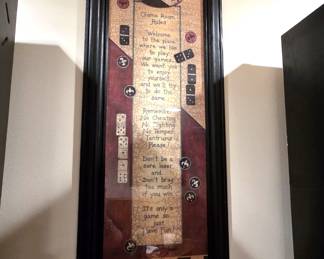 Game Room
Rules
Welcome
to the place
where we like
to play
our games.
We want you
to enjoy
yourself
and we'll try
to do the
same.
Remember
No Cheating
No Fighting
No Temper
Tantrums
Please!
Don't be a
sore loser
and
Don't brag
too much
if you win.
It's only a
game so
just
Have Fun!